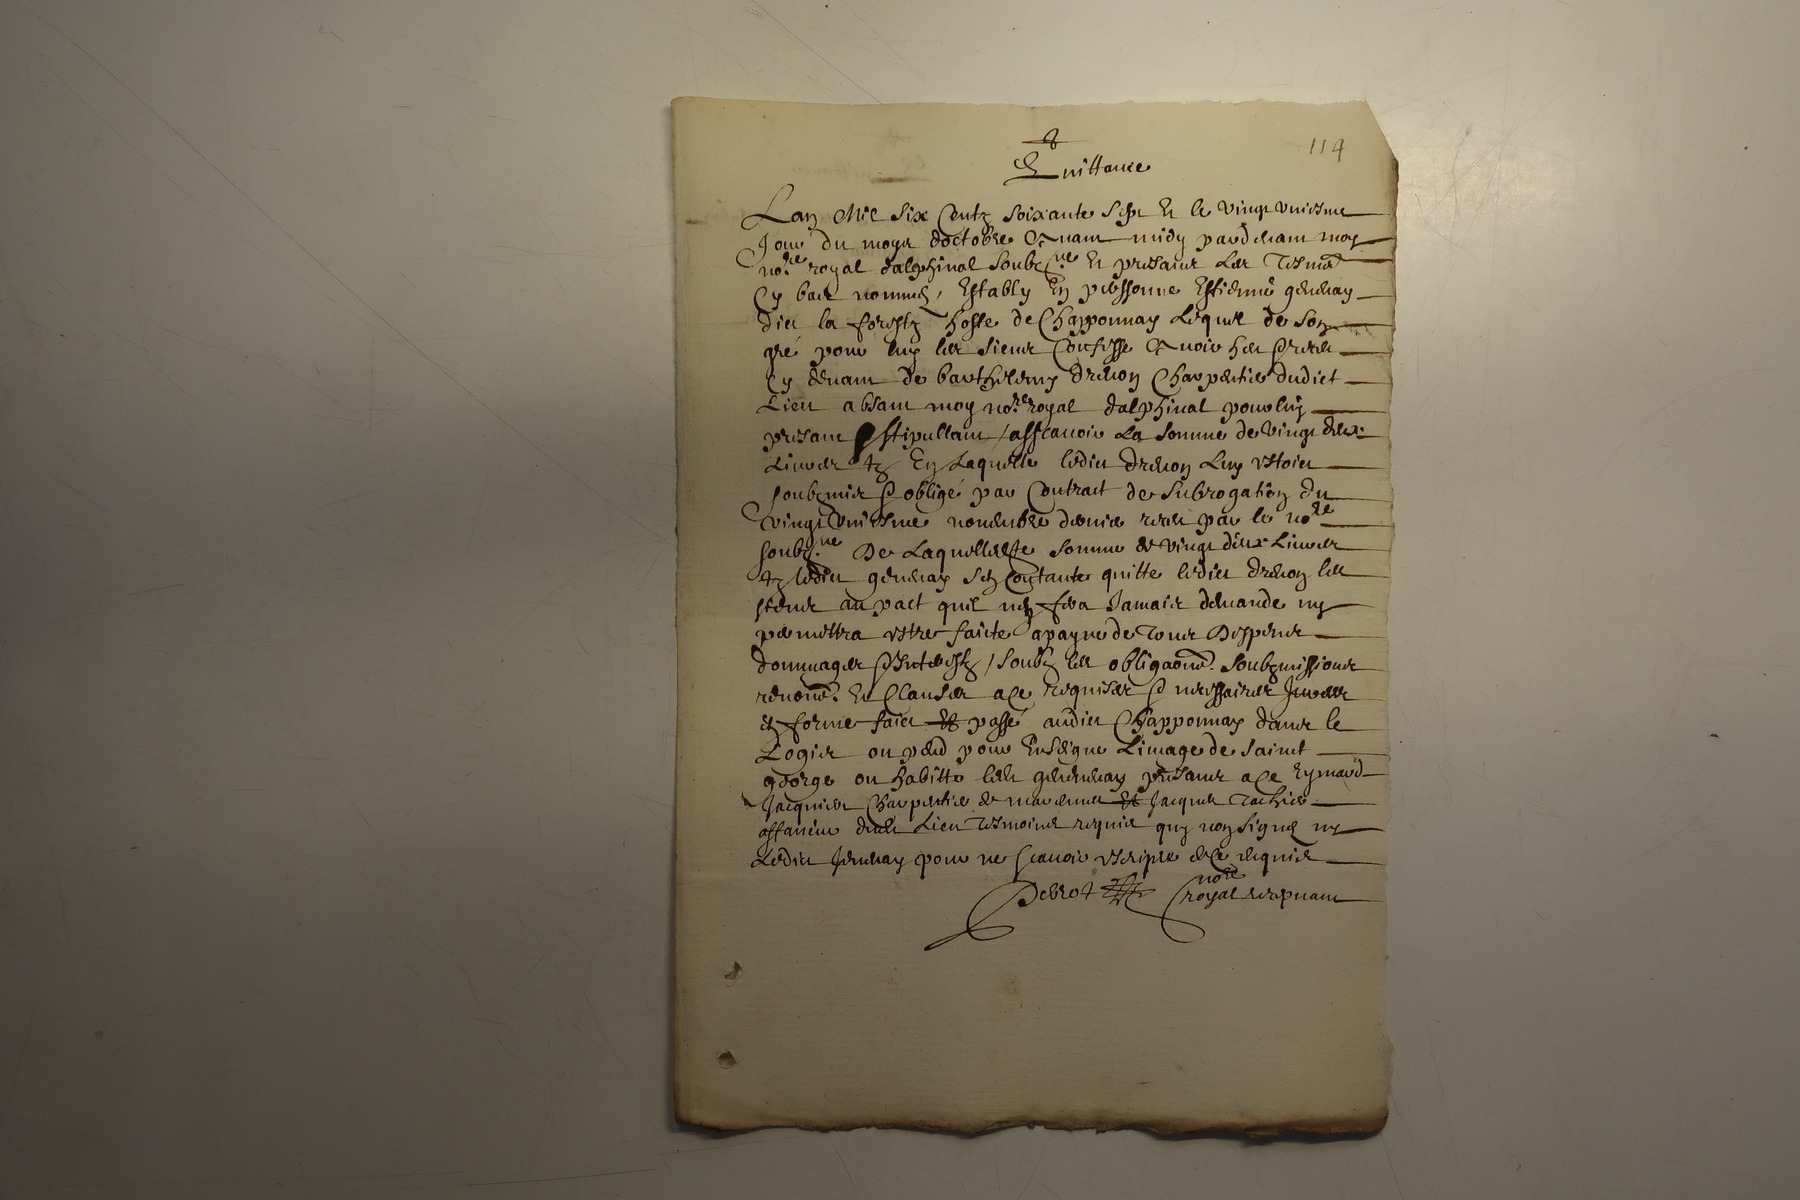 114
Quittance
Lan Mil Six Centz Soixante Sept Et le vingt uniesme
Jour du moys doctobre avant midy pardevant moy
no.re royal dalphinal soubz.ne Et presantz Les tesmo.
Cy bas nommes, Estably En personne Estienne genevay
dict la forestz hoste de Chapponnay Lequel de son
gré pour luy les siens Confesse avoir heu receu
Cy devant de barthelemy drevon Charpentier dudict
Lieu absant moy no.re royal dalphinal pour luy
presant stipullant / assçavoir La somme de vingt deux
Livres tz En Laquelle ledict drevon Luy estoict
soubzmis & obligé par Contract de subrogation du
vingt uniesme novembre dernier receu par le no.re
soubz.ne De Laquelle somme de vingt deux Livres
tz ledict genevay sen Contante quitte ledict drevon les
siens au pact quil nen fera Jamais demande ny
permettra estre faicte a payne de tous Despens
dommages & Interestz / soubz les obligaons. soubzmissions
renons. Et Clauses a ce requises & necessaires
En forme faict passé audict Chapponnay dans le
Logis ou pend pour Enseigne Limage de sainct
george ou habitte ledict genevay presants a ce Eymard
Jacquier Charpentier de marennes Et Jacques
affaneur dudict Lieu tesmoins requis quy non signes ny
Ledict genevay pour ne sçavoir escripre de ce requis
Debrot no.re
royal recepvant